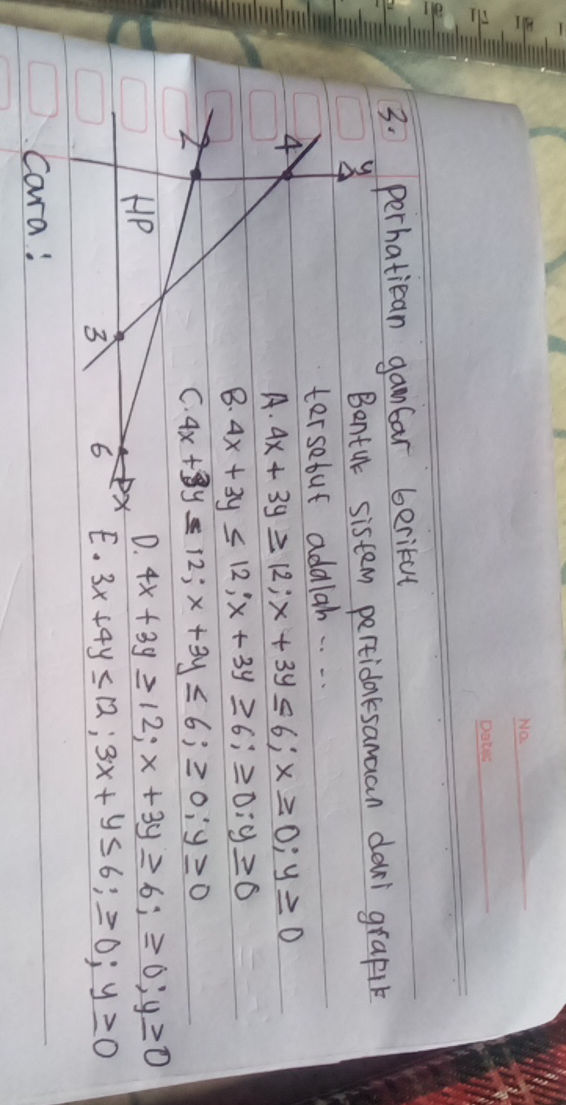 No.
Date:
3. Perhatikan gambar berikut
Bentuk sistem pertidaksamaan dari grafik
tersebut adalah....
A. 4x + 3y ≥ 12; x + 3y ≤ 6; x ≥ 0; y ≥ 0
B. 4x + 3y ≤ 12; x + 3y ≥ 6; ≥ 0; y ≥ 0
C. 4x + 3y ≤ 12; x + 3y ≤ 6; ≥ 0; y ≥ 0
D. 4x + 3y ≥ 12; x + 3y ≥ 6; ≥ 0; y ≥ 0
E. 3x + 4y ≤ 12; 3x + y ≤ 6; ≥ 0; y ≥ 0
y
4
2
HP
3
6
x
Cara:
16
17
18